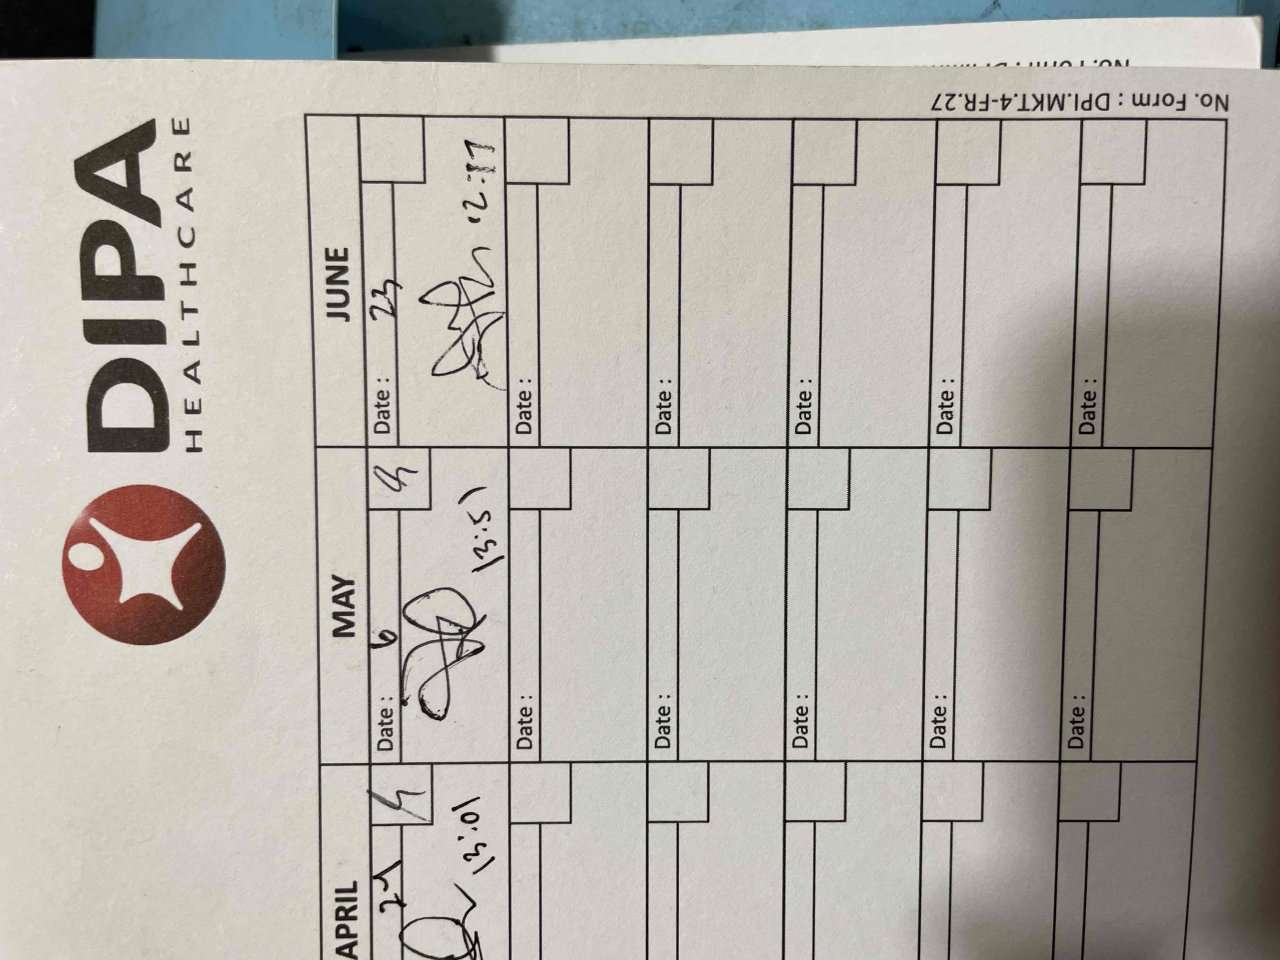 DIPA
HEALTHCARE
No. Form : DPI.MKT.4-FR.27
APRIL
MAY
JUNE
Date : 6
Date : 23
13:01
13:51
Date :
Date :
Date :
Date :
Date :
Date :
Date :
Date :
Date :
Date :